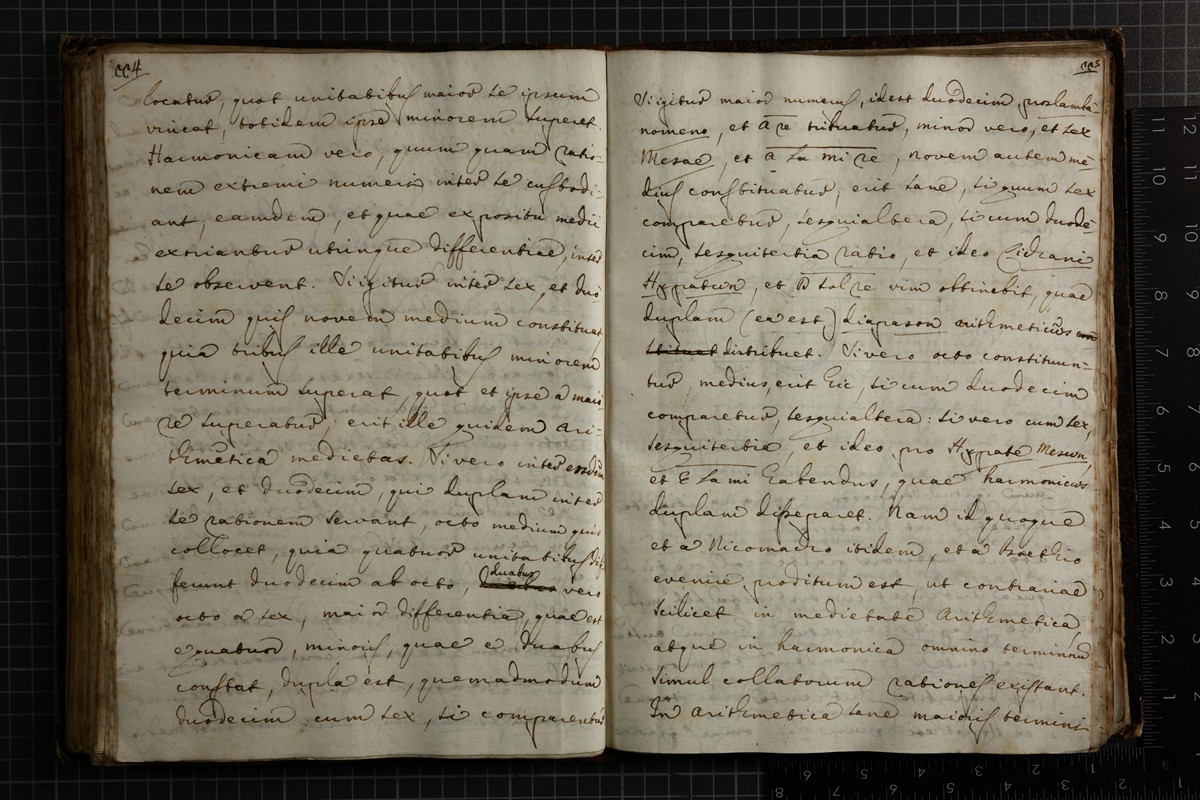 224
locatur, quot unitatibus maior se ipsum
vincat, totidem ipse minorem superet.
Harmonicam vero, quum quam ratio-
nem extremi numeri inter se custodi-
ant, eamdem, et quae ex positu medii
extriantur utrinque differentiae, inter
se observent. Si igitur inter sex, et duo
decim quis novem medium constituat
quia tribus ille unitatibus minorem
terminum superat, quot et ipse a maio-
re superatur, erit ille quidem ari-
thmetica medietas. Si vero inter eosdem
sex, et duodecim, qui duplam inter
se rationem servant, octo medium quis
collocet, quia quatuor unitatibus dif
ferunt duodecim ab octo, duabus vero
octo a sex, maior differentia, quae est
e quatuor, minoris, quae e duabus
constat, dupla est, quemadmodum
duodecim cum sex, si comparentur
225
Si igitur maior numerus, idest duodecim, proslamba-
nomeno, et A re tribuatur, minor vero, et sex
Mesae, et a la mi re, novem autem me
dius constituatur; erit sane, si quum sex
comparetur, sesquialtera, si cum duode-
cim, sesquitertia ratio, et ideo Lidrani
Hypatwn, et D sol re vim obtinebit, quae
duplam (ea est) diapason arithmeticws
distribuet. Si vero octo constituun-
tur, medius erit hic, si cum duodecim
comparetur, sesquialtera: si vero cum sex,
sesquitertia, et ideo pro Hypate Meswn,
et E la mi habendus, quae harmonicws
duplam disseparet. Nam id quoque
et a Nicomacho itidem, et a Boethio
evenire proditum est, ut contrariae
scilicet in medietate Arithmetica
atque in harmonica omnino terminorum
simul collatorum rationes existant.
In arithmetica sane maioris termini